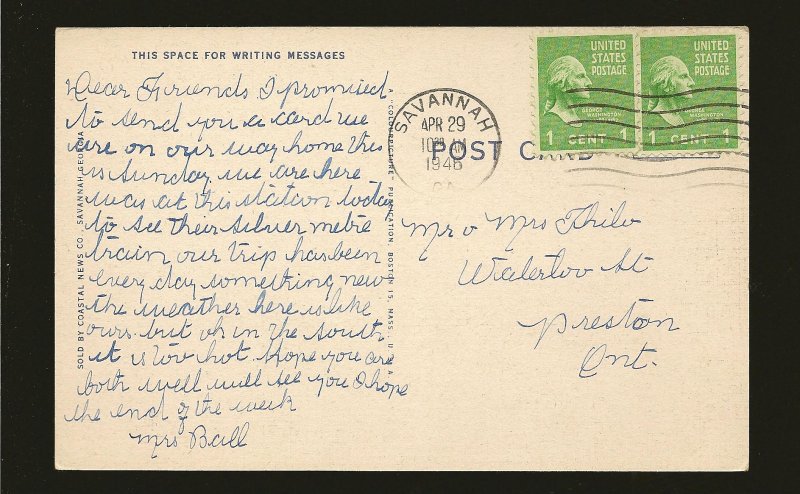 THIS SPACE FOR WRITING MESSAGES
Dear Friends I promised
to send you a card we
are on our way home this
is Sunday we are here
was at this station today
to see their silver metre
train our trip has been
every day something new
the weather here is like
ours. but oh in the South
it is too hot. Hope you are
both well will see you I hope
the end of the week
Mrs Ball
SOLD BY COASTAL NEWS CO., SAVANNAH, GEORGIA
A "COLOURPICTURE" PUBLICATION, BOSTON 15, MASS., U. S. A.
SAVANNAH
APR 29
10 AM
1946
GA.
POST CARD
UNITED
STATES
POSTAGE
GEORGE
WASHINGTON
1 CENT 1
UNITED
STATES
POSTAGE
WASHINGTON
1 CENT 1
Mr & Mrs Thilo
Waterloo St
Preston
Ont.